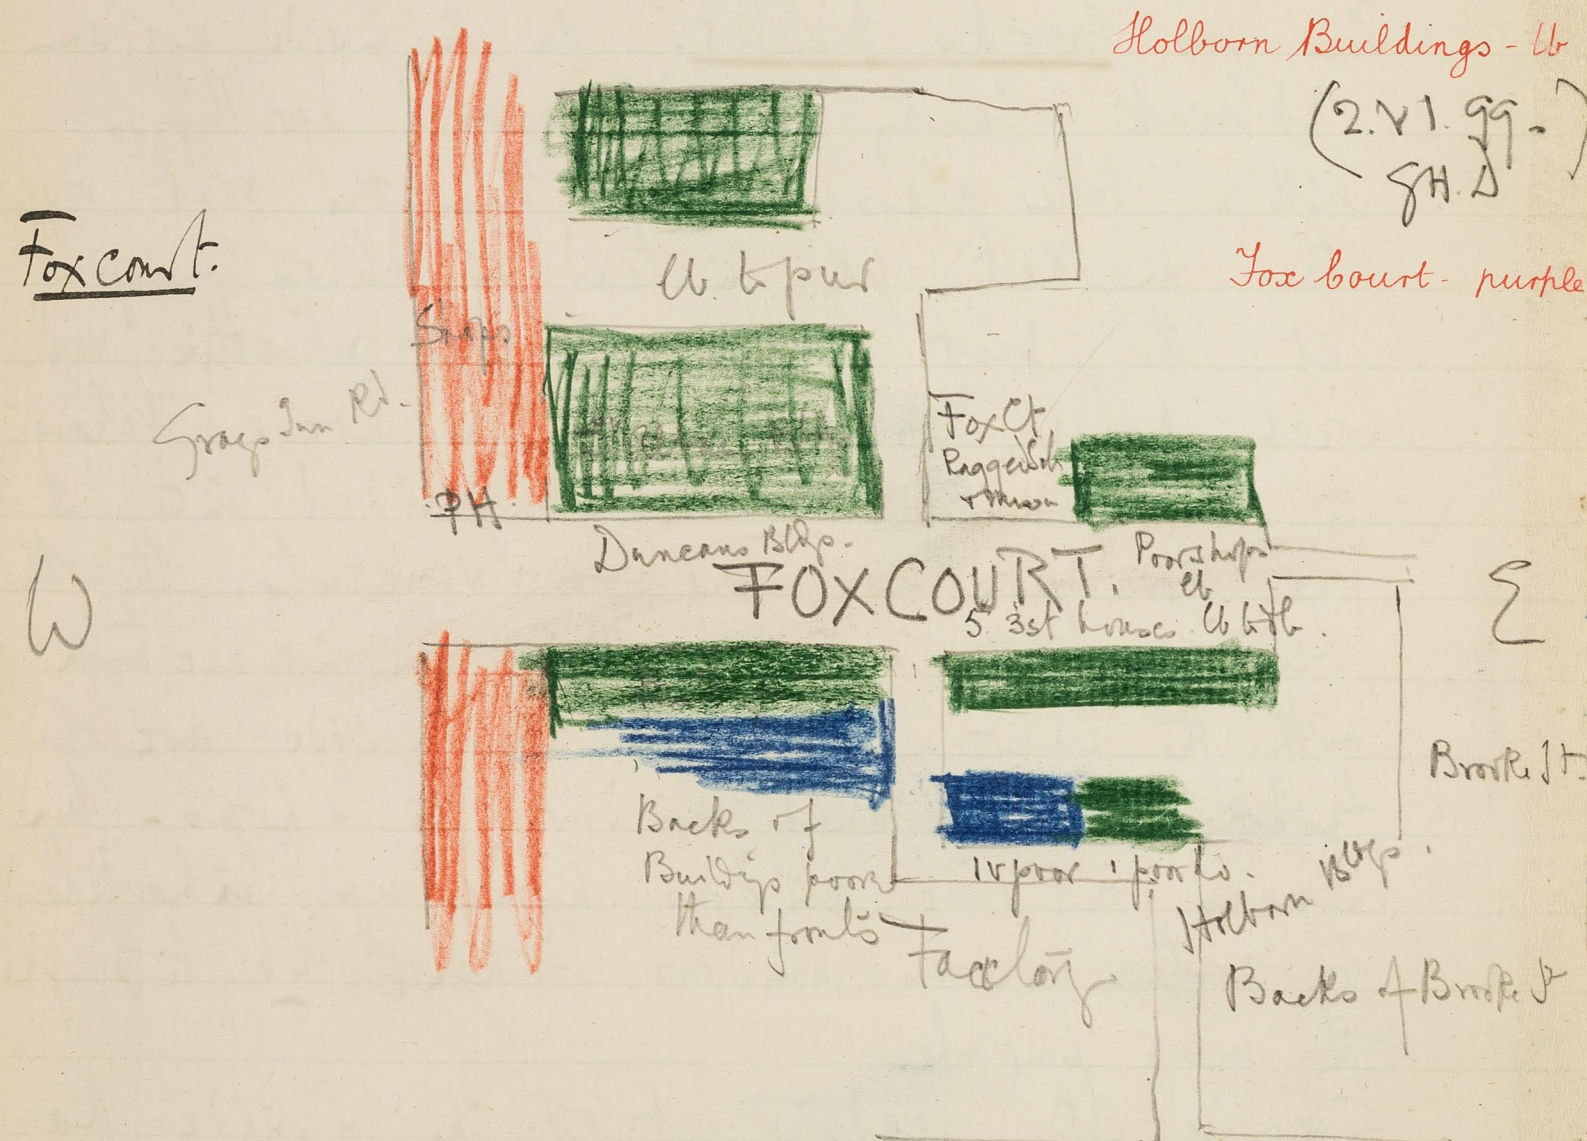 Holborn Buildings - lb
(2.VI.99-
GH.D)
Fox court.
Fox Court - purple
lb. to pur
Shops
Grays Inn Rd.
Fox Ct.
Ragged Sch
+ Mission
PH.
Duncans Bldgs.
Poor shops
FOXCOURT.
lb
W
E
5 3st houses. lb to db.
Brooke St.
Backs of
Buildgs poorer
than fronts
1 v poor 1 poor do.
Holborn Bldgs.
Factory
Backs of Brooke St